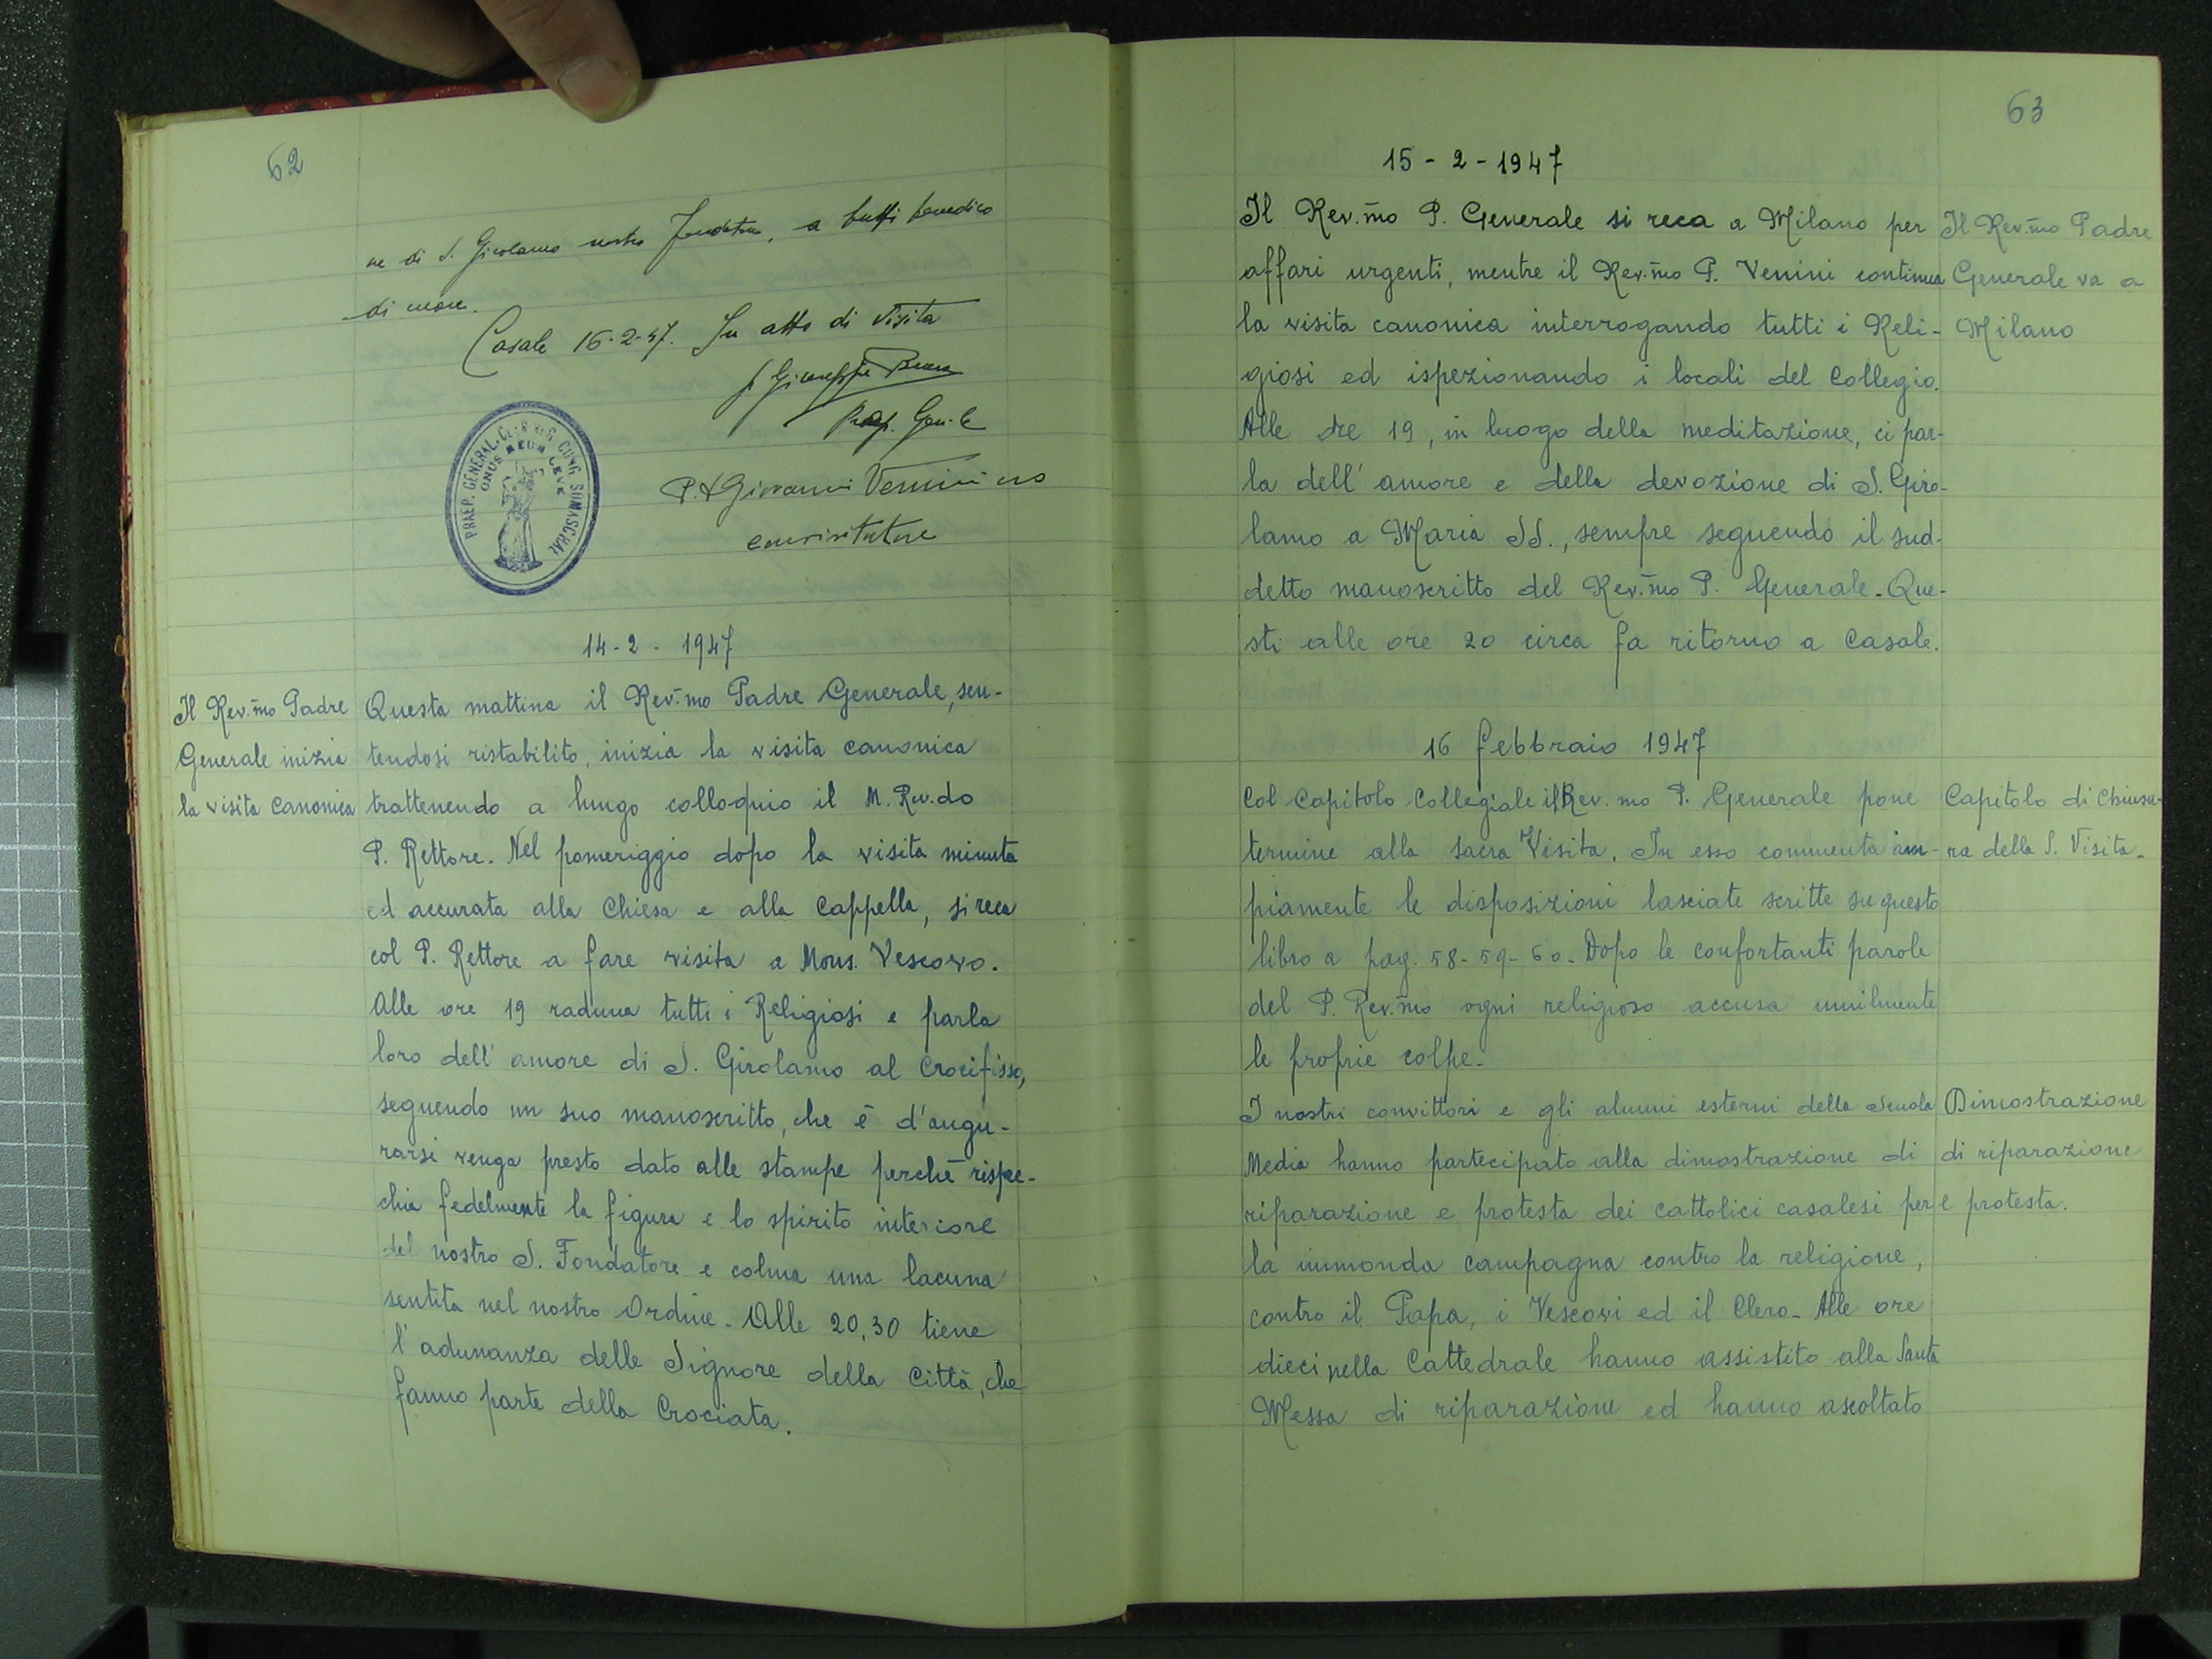 62
ne di S. Girolamo nostro Fondatore, a tutti benedico
di cuore.
Casale 16-2-47. In atto di Visita
P. Giuseppe Brusa
Prep. Gen.le
P. Giovanni Venini crs
convisitatore
PRAEP. GENERAL. CLER. REG. CONG. SOMASCHAE
ONUS MEUM LEVE
14-2-1947
Il Rev.mo Padre
Generale inizia
la visita canonica
Questa mattina il Rev.mo Padre Generale, sen-
tendosi ristabilito, inizia la visita canonica
trattenendo a lungo colloquio il M. Rev.do
P. Rettore. Nel pomeriggio dopo la visita minuta
ed accurata alla Chiesa e alla Cappella, si reca
col P. Rettore a fare visita a Mons. Vescovo.
Alle ore 19 raduna tutti i Religiosi e parla
loro dell'amore di S. Girolamo al Crocifisso,
seguendo un suo manoscritto, che è d'augu-
rarsi venga presto dato alle stampe perchè rispec-
chia fedelmente la figura e lo spirito interiore
del nostro S. Fondatore e colma una lacuna
sentita nel nostro Ordine. Alle 20,30 tiene
l'adunanza delle Signore della Città, che
fanno parte della Crociata.
63
15-2-1947
Il Rev.mo P. Generale si reca a Milano per
affari urgenti, mentre il Rev.mo P. Venini continua
la visita canonica interrogando tutti i Reli-
giosi ed ispezionando i locali del Collegio.
Alle ore 19, in luogo della meditazione, ci par-
la dell'amore e della devozione di S. Giro-
lamo a Maria SS., sempre seguendo il sud-
detto manoscritto del Rev.mo P. Generale. Que-
sti alle ore 20 circa fa ritorno a Casale.
Il Rev.mo Padre
Generale va a
Milano
16 febbraio 1947
Col Capitolo Collegiale il Rev.mo P. Generale pone
termine alla sacra Visita. In esso commenta am-
piamente le disposizioni lasciate scritte su questo
libro a pag. 58-59-60. Dopo le confortanti parole
del P. Rev.mo ogni religioso accusa umilmente
le proprie colpe.
Capitolo di chiusu-
ra della S. Visita.
I nostri convittori e gli alunni esterni della Scuola
Media hanno partecipato alla dimostrazione di
riparazione e protesta dei cattolici casalesi per
la immonda campagna contro la religione,
contro il Papa, i Vescovi ed il Clero. Alle ore
dieci nella Cattedrale hanno assistito alla Santa
Messa di riparazione ed hanno ascoltato
Dimostrazione
di riparazione
e protesta.